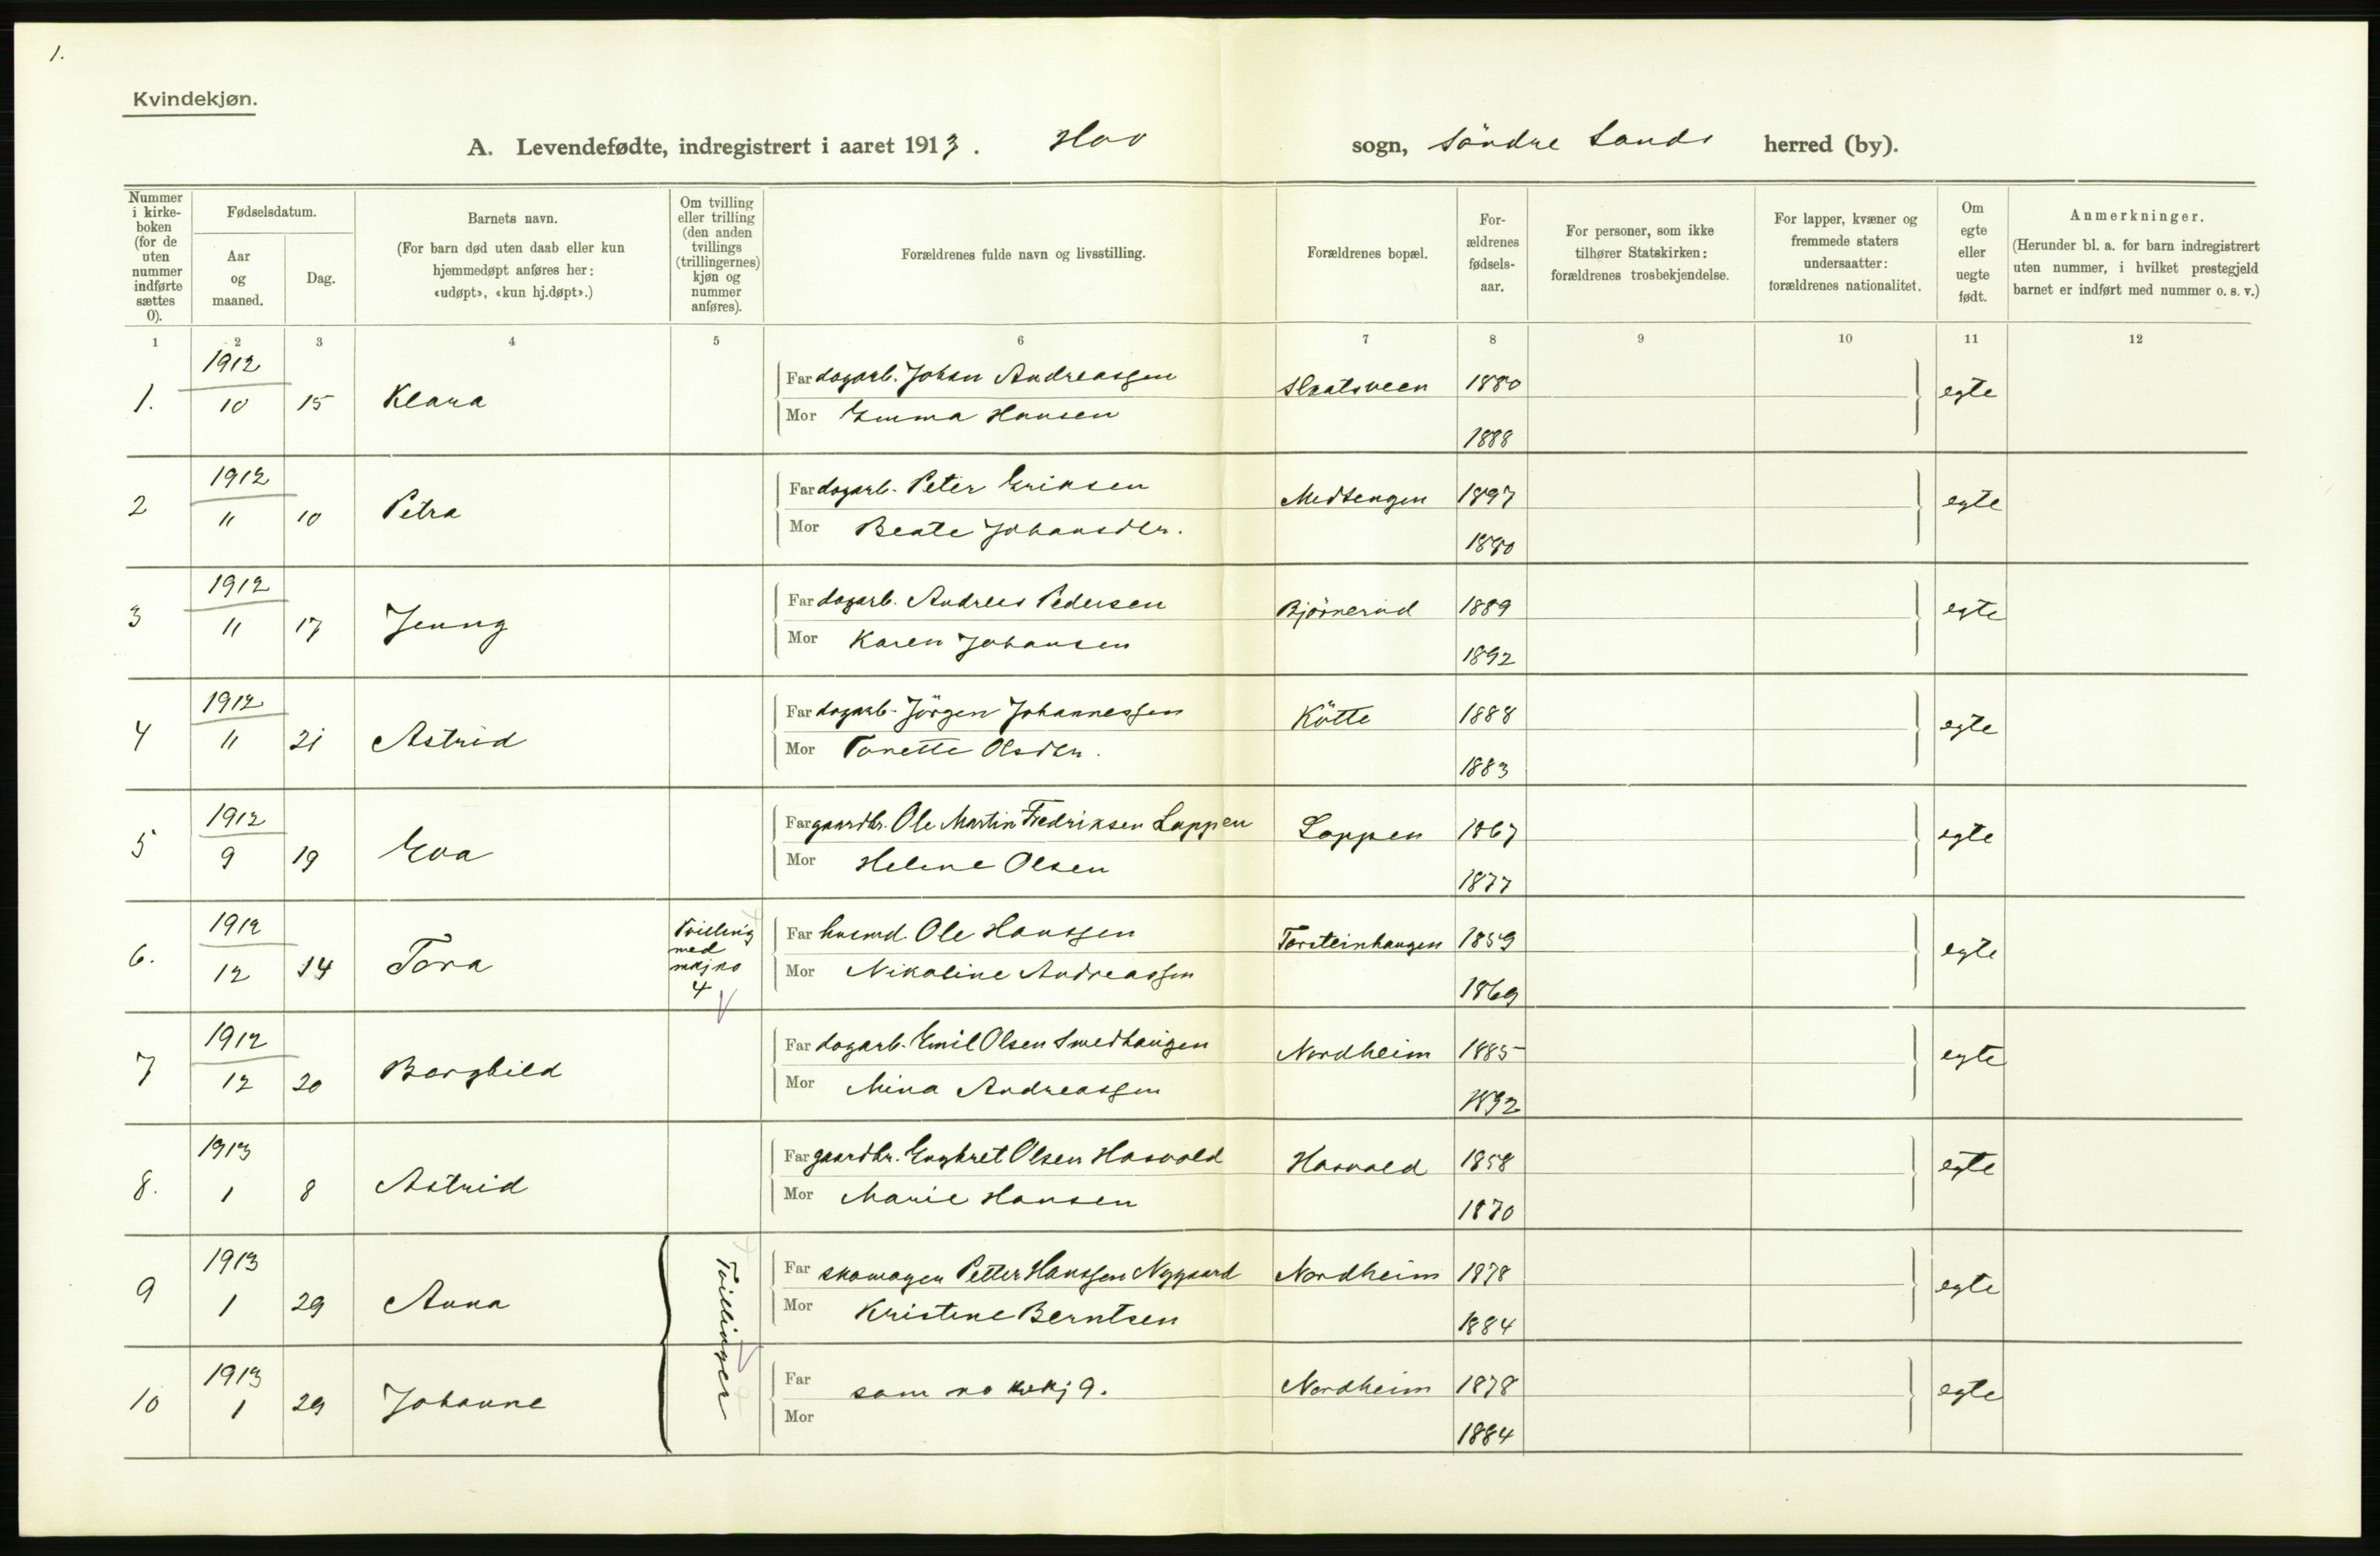 1.
Kvindekjøn.
A. Levendefødte, indregistrert i aaret 1913. Hov sogn, Söndre Lands herred (by).
Nummer i kirkeboken (for de uten nummer indførte sættes 0).
Fødselsdatum.
Aar og maaned.
Dag.
Barnets navn.
(For barn død uten daab eller kun hjemmedøpt anføres her: «udøpt», «kun hj.døpt».)
Om tvilling eller trilling (den anden tvillings (trillingernes) kjøn og nummer anføres).
Forældrenes fulde navn og livsstilling.
Forældrenes bopæl.
Forældrenes fødselsaar.
For personer, som ikke tilhører Statskirken: forældrenes trosbekjendelse.
For lapper, kvæner og fremmede staters undersaatter: forældrenes nationalitet.
Om egte eller uegte født.
Anmerkninger.
(Herunder bl. a. for barn indregistrert uten nummer, i hvilket prestegjeld barnet er indført med nummer o. s. v.)
1 2 3 4 5 6 7 8 9 10 11 12
1. 1912 10 15 Klara Far dagarb. Johan Andreassen Slaatsveen 1880 egte
Mor Emma Hansen 1888
2 1912 11 10 Petra Far dagarb. Peter Eriksen Medtengen 1897 egte
Mor Beate Johansdtr. 1890
3 1912 11 17 Jenny Far dagarb. Andreas Pedersen Björnerud 1889 egte
Mor Karen Johansen 1892
4 1912 11 21 Astrid Far dagarb. Jörgen Johannessen Kötte 1888 egte
Mor Tonette Olsdtr. 1883
5 1912 9 19 Eva Far gaardbr. Ole Martin Fredriksen Loppen Loppen 1867 egte
Mor Helene Olsen 1877
6. 1912 12 14 Tora Tvilling med mkj no 4 Far husmd. Ole Hanssen Torsteinhaugen 1859 egte
Mor Nikoline Andreassen 1869
7 1912 12 20 Borghild Far dagarb. Emil Olsen Smedhaugen Nordheim 1885 egte
Mor Mina Andreassen 1892
8. 1913 1 8 Astrid Far gaardbr. Engbret Olsen Hasvold Hasvold 1858 egte
Mor Marie Hansen 1870
9 1913 1 29 Anna Tvillinger Far skomagen Petter Hanssen Nygaard Nordheim 1878 egte
Mor Kristine Berntsen 1884
10 1913 1 29 Johanne Far som no kvkj 9. Nordheim 1878 egte
Mor 1884